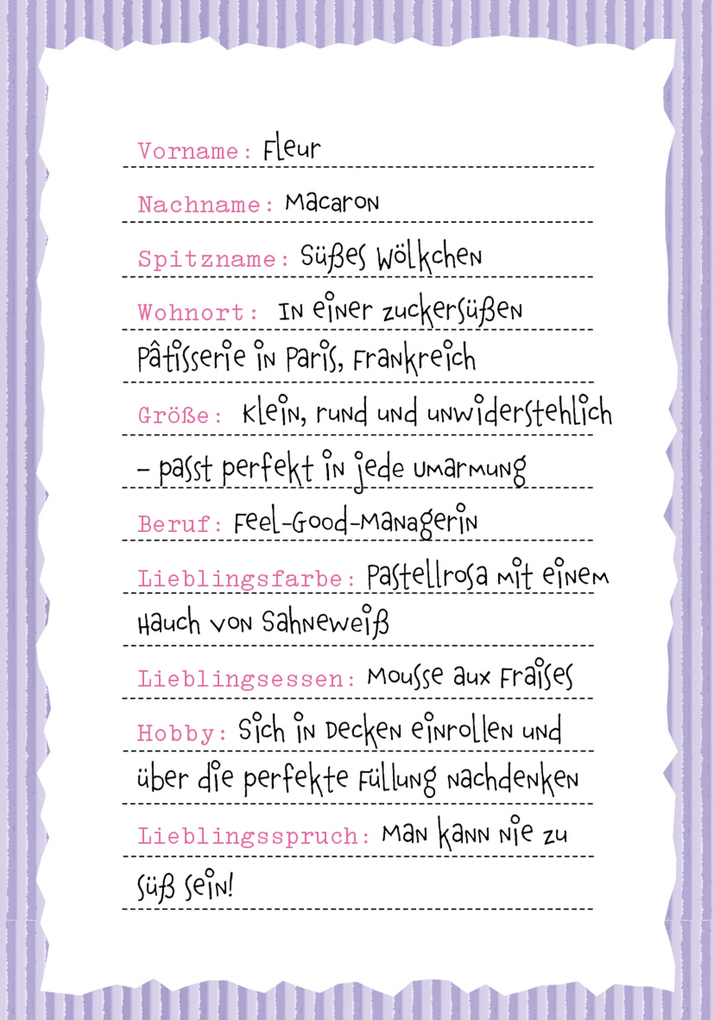 Vorname: Fleur
Nachname: Macaron
Spitzname: Süßes Wölkchen
Wohnort: In einer zuckersüßen
Pâtisserie in Paris, Frankreich
Größe: Klein, rund und unwiderstehlich
– passt perfekt in jede Umarmung
Beruf: Feel-Good-Managerin
Lieblingsfarbe: Pastellrosa mit einem
Hauch von Sahneweiß
Lieblingsessen: Mousse aux Fraises
Hobby: Sich in Decken einrollen und
über die perfekte Füllung nachdenken
Lieblingsspruch: Man kann nie zu
süß sein!